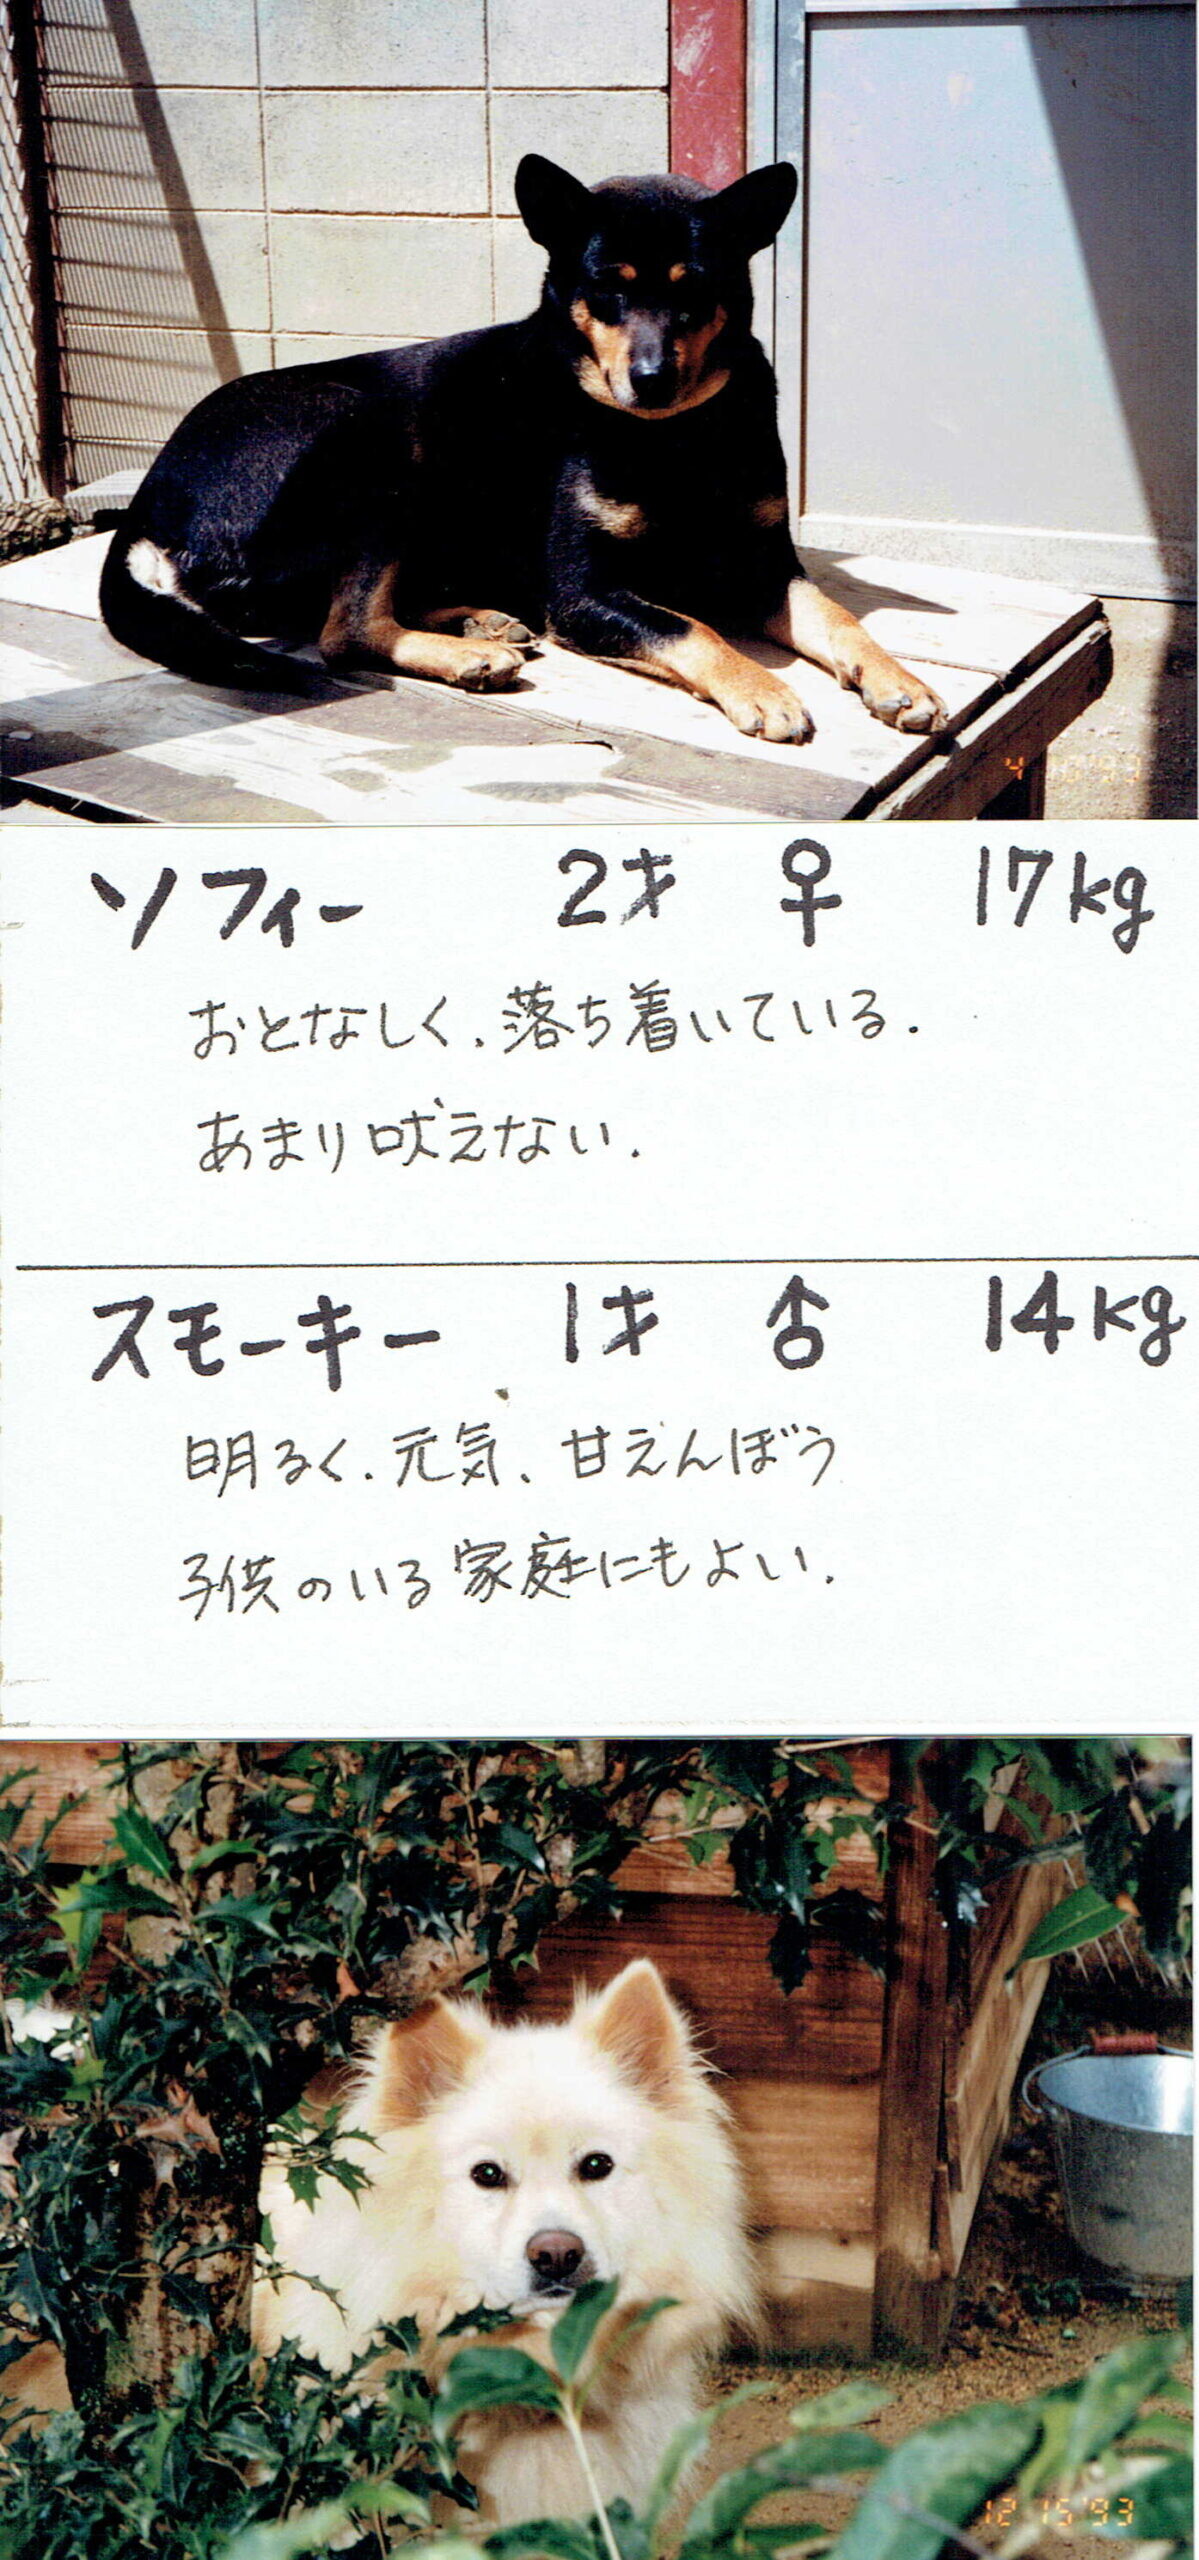 ソフィー 2才 ♀ 17kg
おとなしく、落ち着いている.
あまり吠えない.
スモーキー 1才 ♂ 14kg
明るく、元気、甘えんぼう
子供のいる家庭にもよい.
12 15 '93